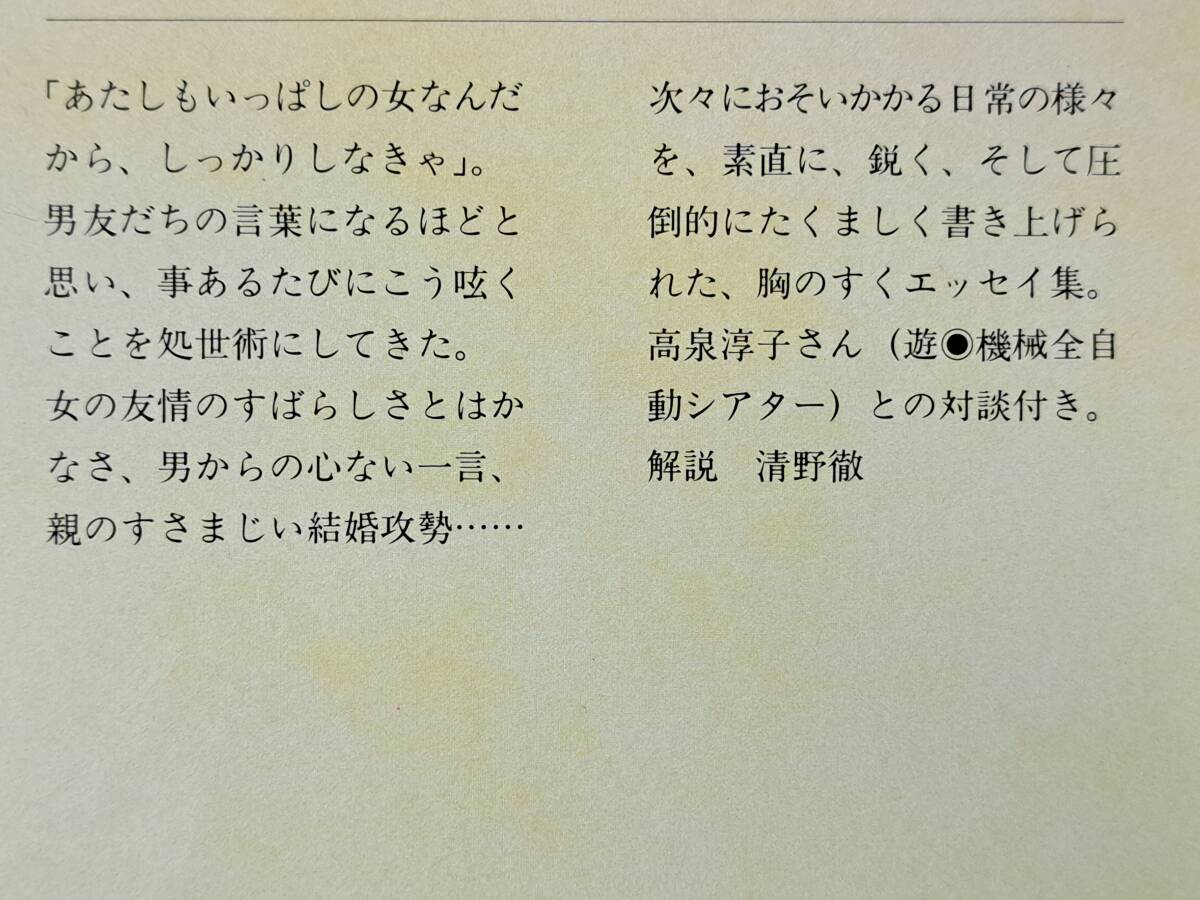 「あたしもいっぱしの女なんだ
から、しっかりしなきゃ」。
男友だちの言葉になるほどと
思い、事あるたびにこう呟く
ことを処世術にしてきた。
女の友情のすばらしさとはか
なさ、男からの心ない一言、
親のすさまじい結婚攻勢……
次々におそいかかる日常の様々
を、素直に、鋭く、そして圧
倒的にたくましく書き上げら
れた、胸のすくエッセイ集。
高泉淳子さん（遊◉機械全自
動シアター）との対談付き。
解説　清野徹